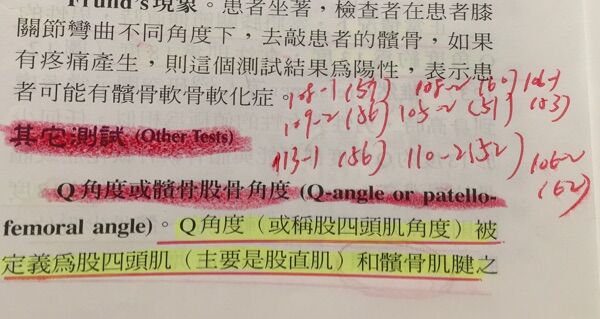 Frund's現象。患者坐著，檢查者在患者膝
關節彎曲不同角度下，去敲患者的髕骨，如果
有疼痛產生，則這個測試結果為陽性，表示患
者可能有髕骨軟骨軟化症。
108-1 (59) 108-2 (60) 106-1
109-2 (56) 105-2 (51) (53)
其它測試 (Other Tests)
113-1 (56) 110-2 (52) 106-2
(62)
Q角度或髕骨股骨角度 (Q-angle or patello-
femoral angle)。Q角度（或稱股四頭肌角度）被
定義為股四頭肌（主要是股直肌）和髕骨肌腱之